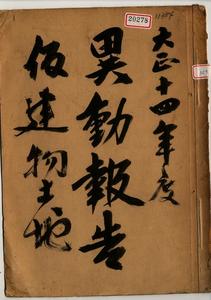 20278
大正十四年度
異動報告
仮建物土地